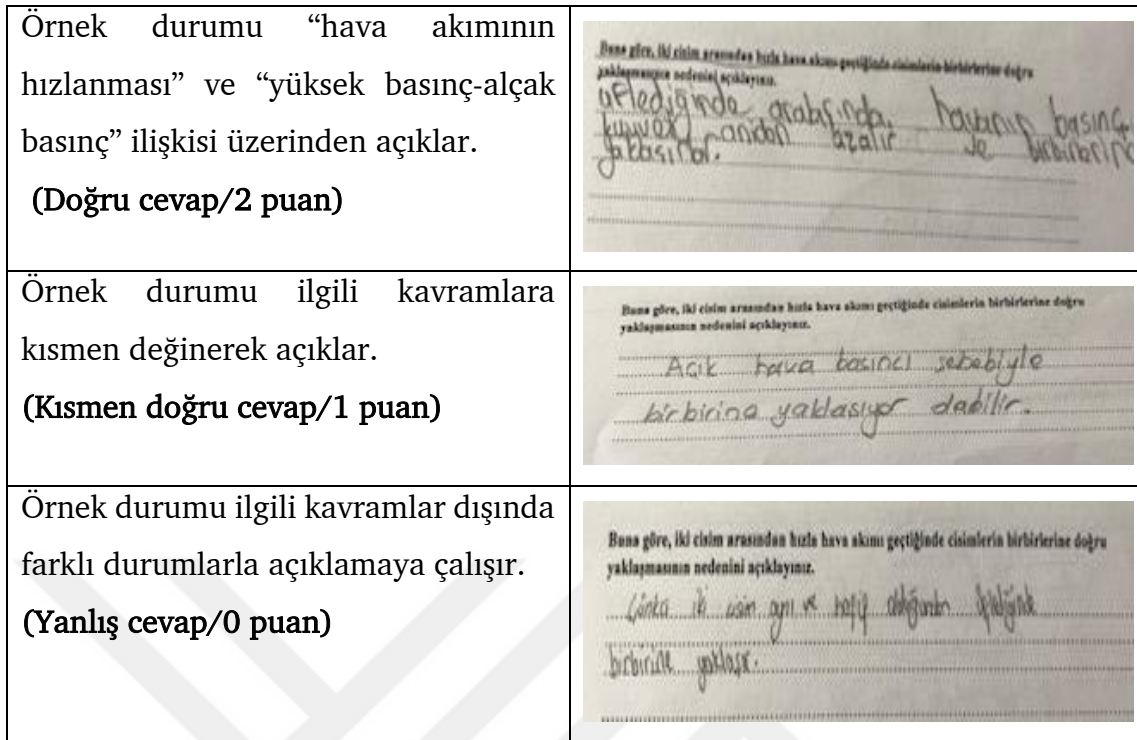 Örnek durumu “hava akımının
hızlanması” ve “yüksek basınç-alçak
basınç” ilişkisi üzerinden açıklar.
(Doğru cevap/2 puan)
Buna göre, iki cisim arasından hızla hava akımı geçtiğinde cisimlerin birbirlerine doğru
yaklaşmasının nedenini açıklayınız.
üflediğinde arabasında havanın basınç
kuvvet aniden azalır ve birbirlerine
yaklaşırlar.
Örnek durumu ilgili kavramlara
kısmen değinerek açıklar.
(Kısmen doğru cevap/1 puan)
Buna göre, iki cisim arasından hızla hava akımı geçtiğinde cisimlerin birbirlerine doğru
yaklaşmasının nedenini açıklayınız.
Açık hava basıncı sebebiyle
birbirine yaklaşıyor olabilir.
Örnek durumu ilgili kavramlar dışında
farklı durumlarla açıklamaya çalışır.
(Yanlış cevap/0 puan)
Buna göre, iki cisim arasından hızla hava akımı geçtiğinde cisimlerin birbirlerine doğru
yaklaşmasının nedenini açıklayınız.
Çünkü iki cisim aynı ve hafif olduğundan üflediğinde
birbirine yaklaşır.